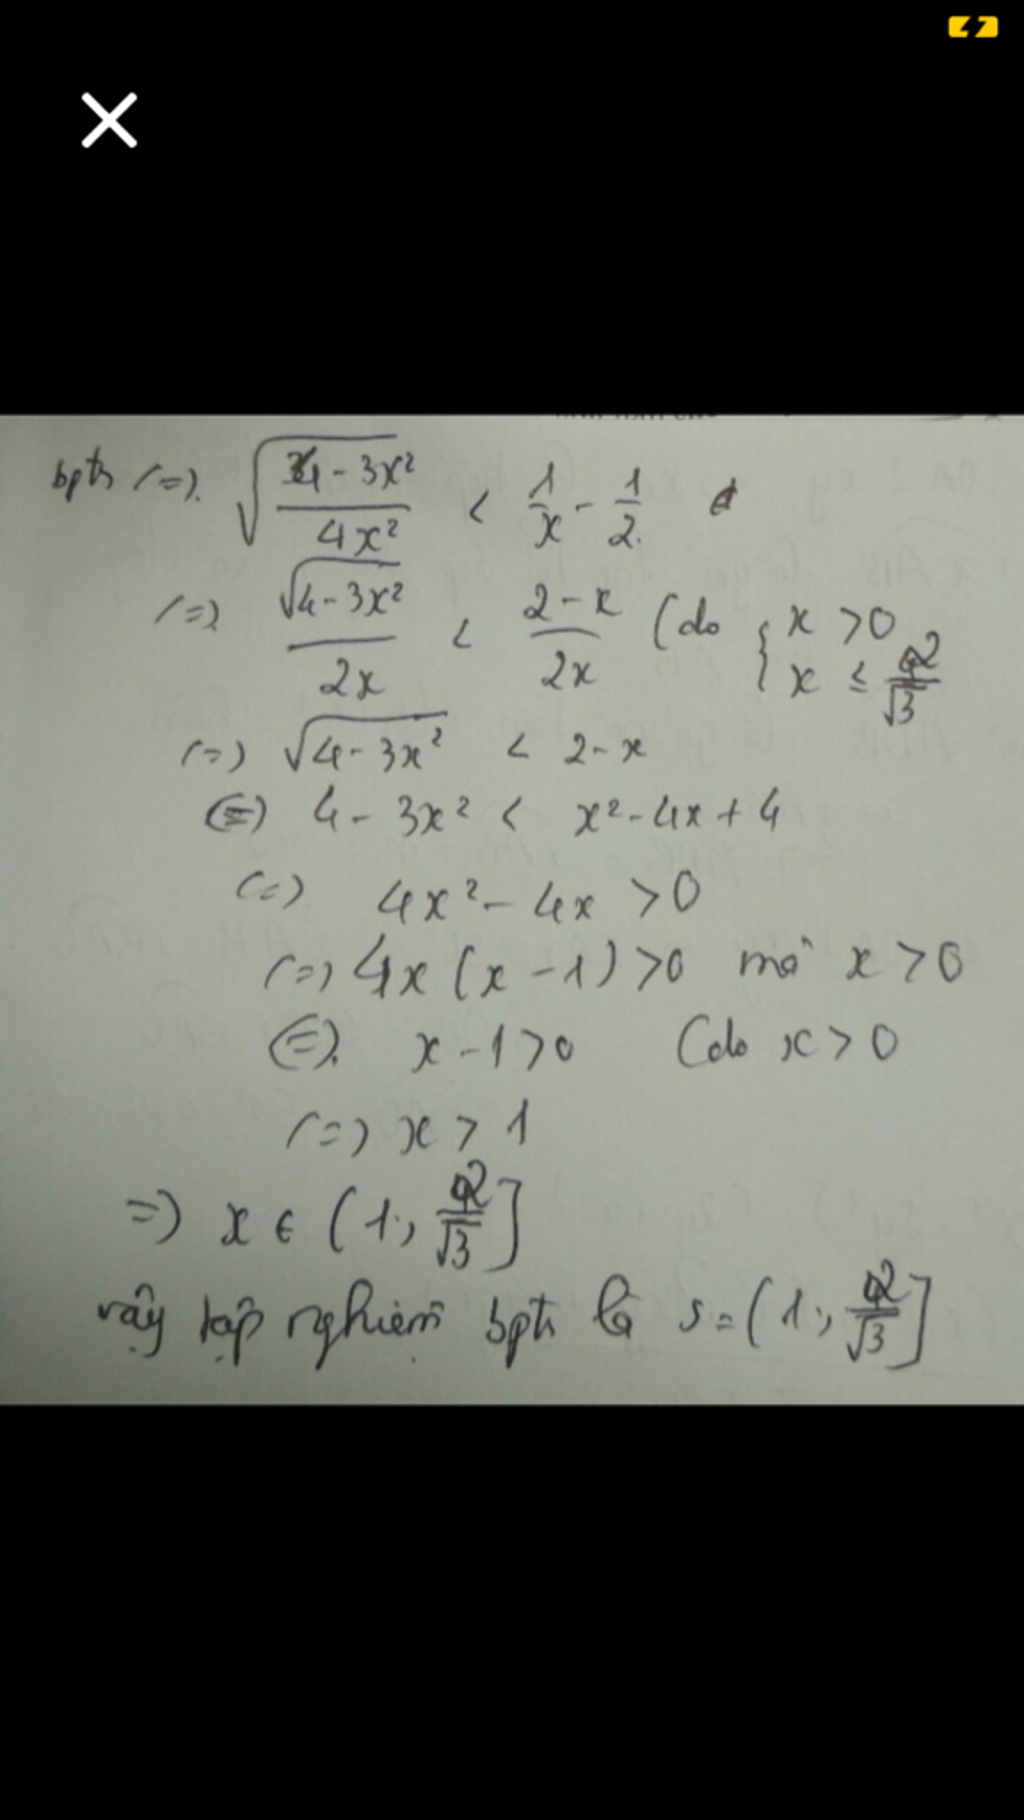 bpth <=> √((4-3x²)/(4x²)) < 1/x - 1/2
<=> √(4-3x²)/(2x) < (2-x)/(2x) (do { x > 0
x ≤ 2/√3
<=> √(4-3x²) < 2-x
<=> 4-3x² < x²-4x+4
<=> 4x²-4x > 0
<=> 4x(x-1) > 0 mà x > 0
<=> x-1 > 0 (do x > 0
<=> x > 1
=> x ∈ (1; 2/√3]
vậy tập nghiệm bpth là S = (1; 2/√3]